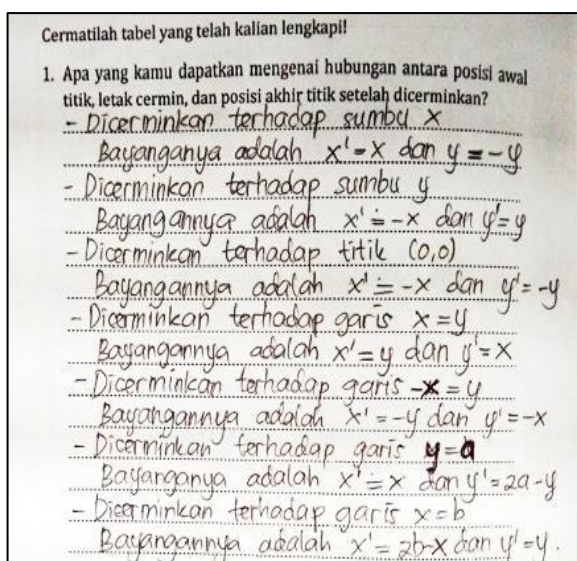 Cermatilah tabel yang telah kalian lengkapi!
1. Apa yang kamu dapatkan mengenai hubungan antara posisi awal
titik, letak cermin, dan posisi akhir titik setelah dicerminkan?
- Dicerminkan terhadap sumbu x
Bayanganya adalah x' = x dan y = -y
- Dicerminkan terhadap sumbu y
Bayangannya adalah x' = -x dan y' = y
- Dicerminkan terhadap titik (0,0)
Bayangannya adalah x' = -x dan y' = -y
- Dicerminkan terhadap garis x = y
Bayangannya adalah x' = y dan y' = x
- Dicerminkan terhadap garis -x = y
Bayangannya adalah x' = -y dan y' = -x
- Dicerminkan terhadap garis y = a
Bayanganya adalah x' = x dan y' = 2a - y
- Dicerminkan terhadap garis x = b
Bayangannya adalah x' = 2b - x dan y' = y.